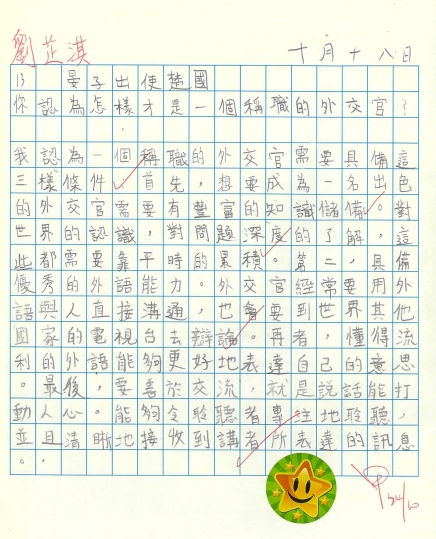 劉芷淇
十月十八日
13 晏子出使楚國
你認為怎樣才是一個稱職的外交官?
我認為一個稱職的外交官需要具備這
三樣條件。首先,想要成為一名出色
的外交官需要有豐富的知識儲備。對
世界的認識,對問題深度的了解,這
些都需要靠平時的累積。第二,具備
優秀的外語能力。外交官經常要用外
語與人直接溝通,也會要到世界其他
國家的電視台去辯論。再者,懂得流
利的外語能夠更好地表達自己的意思
。最後,要善於交流,就是說話能打
動人心。能夠令聆聽者專注地聆聽,
並且清晰地接收到講者所表達的訊息
。
24/10